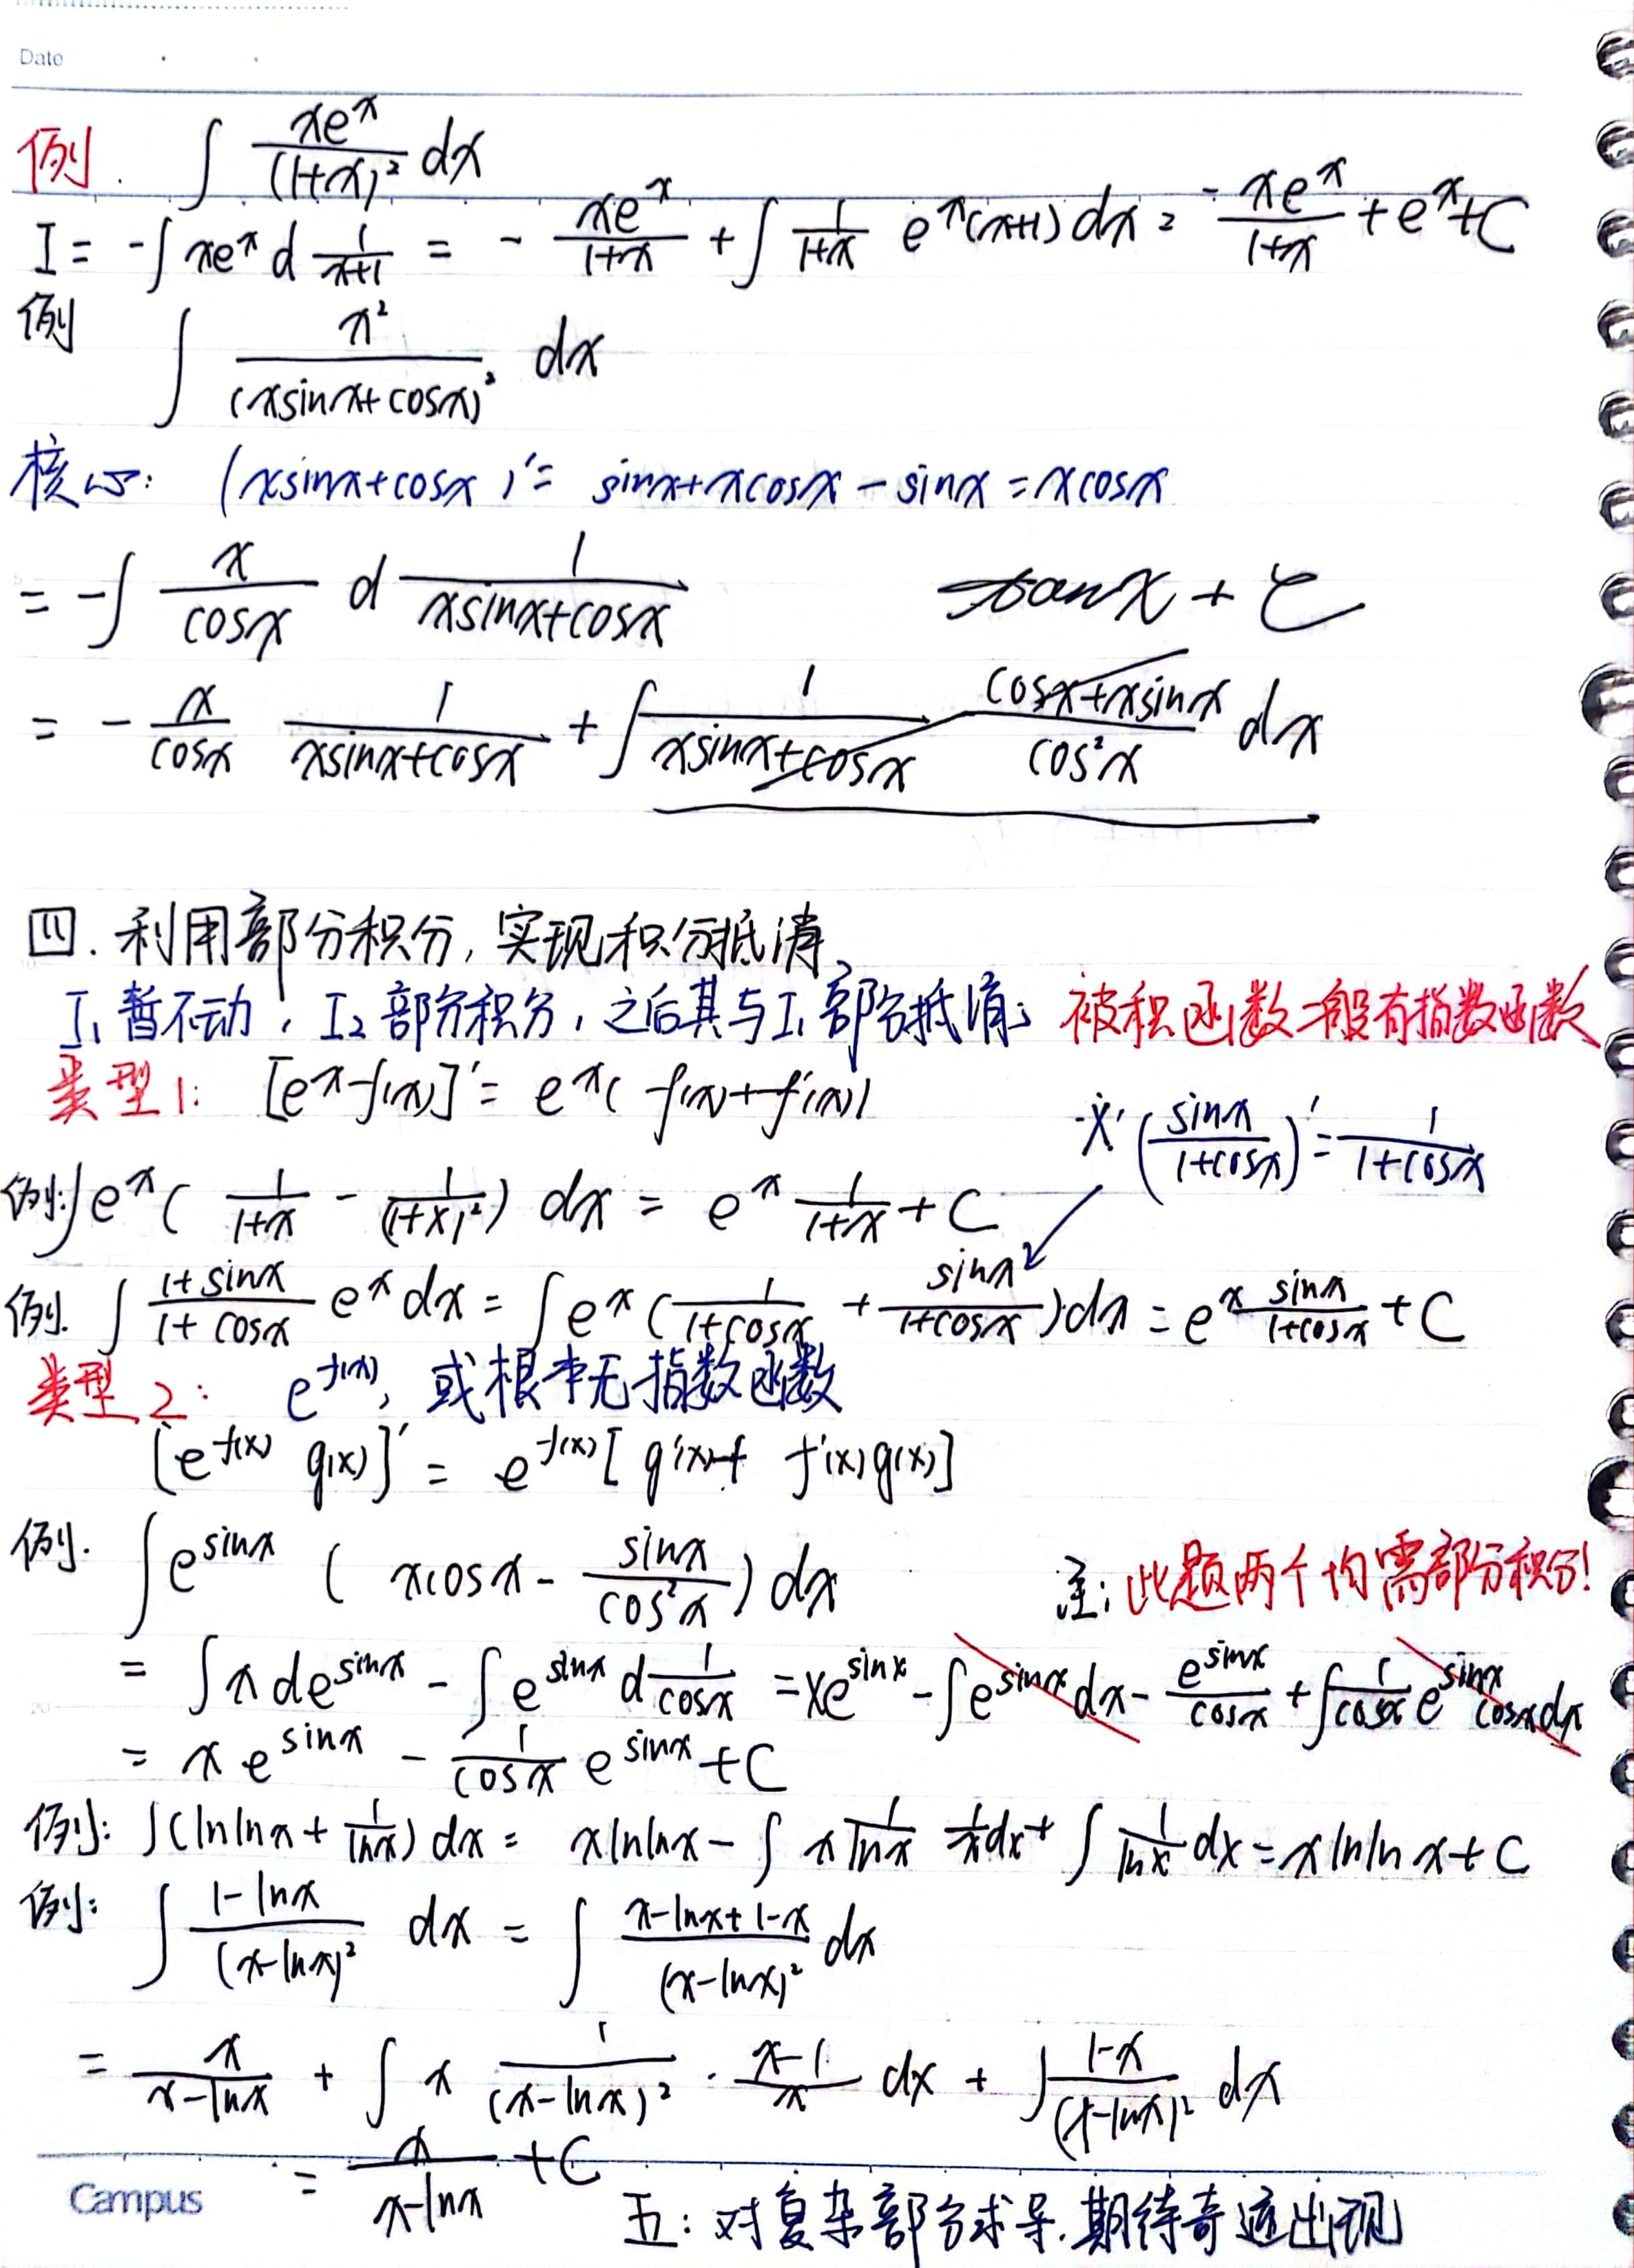 Date
例. ∫ xe^x/(1+x)² dx
I = -∫ xe^x d 1/(x+1) = - xe^x/(1+x) + ∫ 1/(1+x) e^x(x+1) dx = - xe^x/(1+x) + e^x + C
例 ∫ x²/(xsinx+cosx)² dx
核心: (xsinx+cosx)' = sinx+xcosx-sinx = xcosx
= -∫ x/cosx d 1/(xsinx+cosx)
tanx + C
= - x/cosx 1/(xsinx+cosx) + ∫ 1/(xsinx+cosx) (cosx+xsinx)/cos²x dx
四. 利用部分积分, 实现积分抵消.
I₁ 暂不动, I₂ 部分积分, 之后其与 I₁ 部分抵消; 被积函数一般有指数函数
类型1: [e^x f(x)]' = e^x( f(x)+f'(x))
※ (sinx/(1+cosx))' = 1/(1+cosx)
例: ∫e^x ( 1/(1+x) - 1/(1+x)² ) dx = e^x 1/(1+x) + C
例. ∫ (1+sinx)/(1+cosx) e^x dx = ∫ e^x ( 1/(1+cosx) + sinx/(1+cosx) )dx = e^x sinx/(1+cosx) + C
类型2: e^f(x), 或根本无指数函数
[e^f(x) g(x)]' = e^f(x) [ g'(x)+ f'(x)g(x)]
例. ∫e^sinx ( xcosx - sinx/cos²x ) dx
注: 此题两个均需部分积分!
= ∫ x de^sinx - ∫ e^sinx d 1/cosx = xe^sinx - ∫e^sinx dx - e^sinx/cosx + ∫ 1/cosx e^sinx cosx dx
= x e^sinx - 1/cosx e^sinx + C
例: ∫(lnlnx + 1/lnx) dx = xlnlnx - ∫ x 1/lnx 1/x dx + ∫ 1/lnx dx = xlnlnx + C
例: ∫ (1-lnx)/(x-lnx)² dx = ∫ (x-lnx+1-x)/(x-lnx)² dx
= x/(x-lnx) + ∫ x 1/(x-lnx)² · (x-1)/x dx + ∫ (1-x)/(x-lnx)² dx
= x/(x-lnx) + C
Campus
五: 对复杂部分求导, 期待奇迹出现